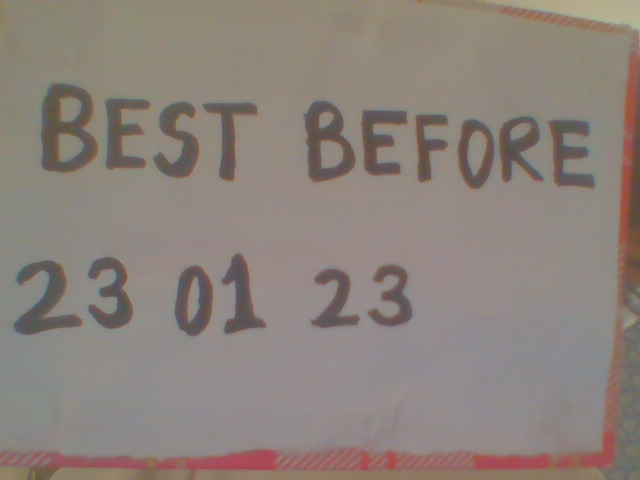 BEST BEFORE
23 01 23